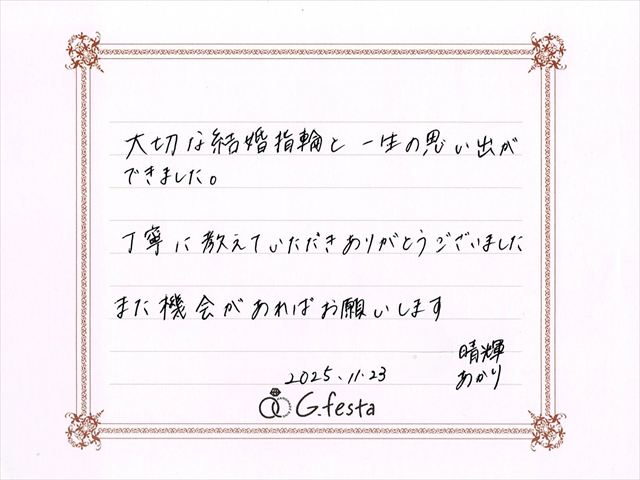 大切な結婚指輪と一生の思い出が
できました。
丁寧に教えていただきありがとうございました
また機会があればお願いします
晴輝
あかり
2025.11.23
G.festa